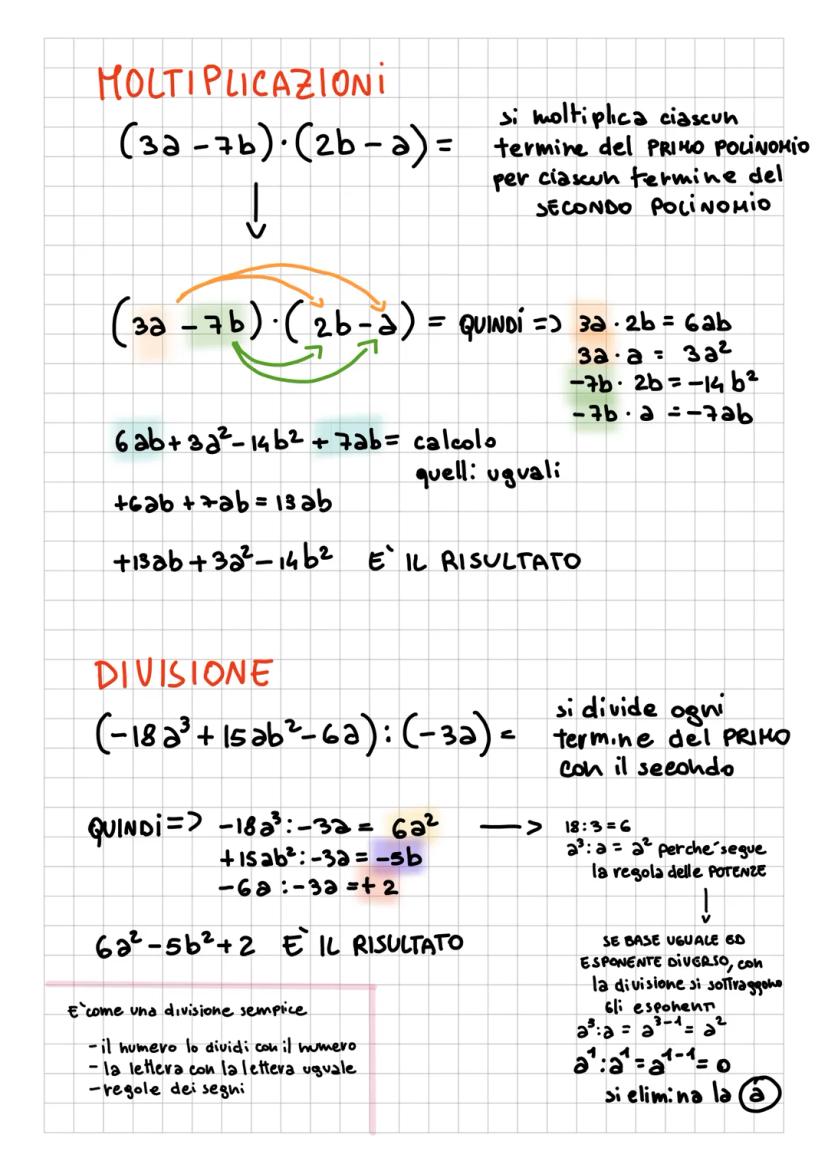 MOLTIPLICAZIONI
(3a - 7b) · (2b - a) =
si moltiplica ciascun
termine del PRIMO POLINOMIO
per ciascun termine del
SECONDO POLINOMIO
(3a - 7b) · (2b - a) = QUINDI => 3a · 2b = 6ab
3a · a = 3a²
-7b · 2b = -14b²
-7b · a = -7ab
6ab + 3a² - 14b² + 7ab = calcolo
quelli uguali
+6ab + 7ab = 13ab
+13ab + 3a² - 14b² E` IL RISULTATO
DIVISIONE
(-18a³ + 15ab² - 6a) : (-3a) =
si divide ogni
termine del PRIMO
con il secondo
QUINDI => -18a³ : -3a = 6a²
+15ab² : -3a = -5b
-6a : -3a = +2
18 : 3 = 6
a³ : a = a² perche´ segue
la regola delle POTENZE
SE BASE UGUALE ED
ESPONENTE DIVERSO, con
la divisione si sottraggono
gli esponenti
a³ : a = a³⁻¹ = a²
a¹ : a¹ = a¹⁻¹ = 0
si elimina la a
6a² - 5b² + 2 E` IL RISULTATO
E` come una divisione semplice
- il numero lo dividi con il numero
- la lettera con la lettera uguale
- regole dei segni